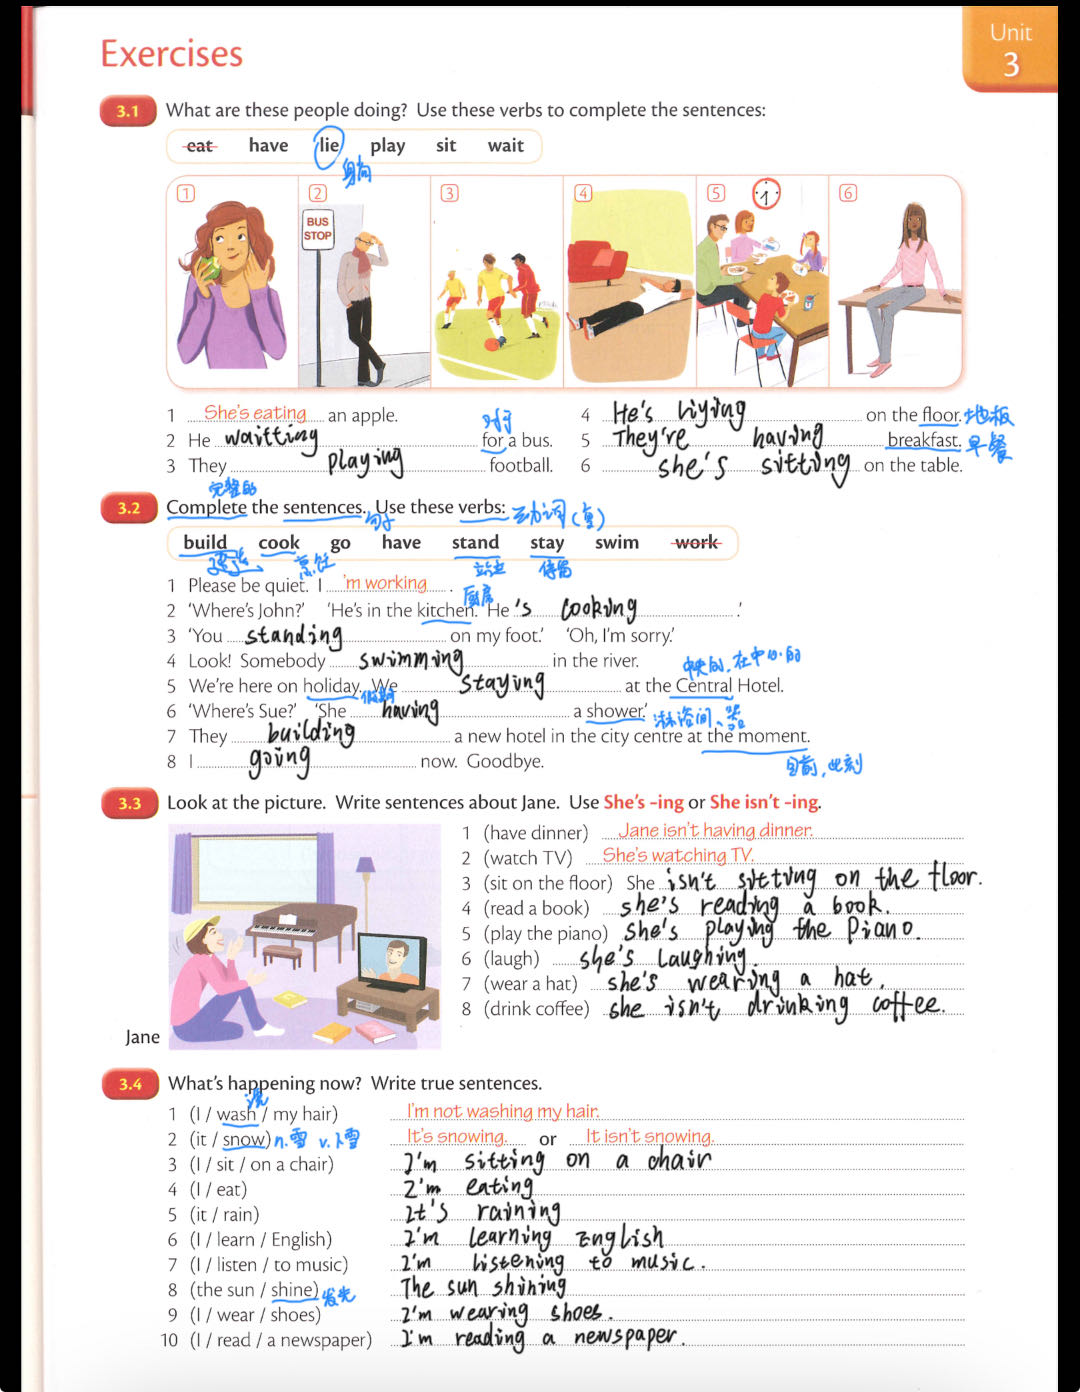 Exercises
Unit
3
3.1 What are these people doing? Use these verbs to complete the sentences:
eat have lie play sit wait
1 2 3 4 5 6
BUS
STOP
1 She's eating an apple.
对于
2 He waitting for a bus.
3 They playing football.
4 He's liying on the floor. 地板
5 They're having breakfast. 早餐
6 she's sitting on the table.
完整的
3.2 Complete the sentences. Use these verbs: 动词(复)
句子
build cook go have stand stay swim work
建造 烹饪 站立 停留
1 Please be quiet. I 'm working .
厨房
2 ‘Where's John?’ ‘He's in the kitchen. He 's cooking .’
3 ‘You standing on my foot.’ ‘Oh, I'm sorry.’
4 Look! Somebody swimming in the river.
中央的,在中心的
5 We're here on holiday. We staying at the Central Hotel.
假期
6 ‘Where's Sue?’ ‘She having a shower.’ 淋浴间、器
7 They building a new hotel in the city centre at the moment.
目前,此刻
8 I going now. Goodbye.
3.3 Look at the picture. Write sentences about Jane. Use She's -ing or She isn't -ing.
1 (have dinner) Jane isn't having dinner.
2 (watch TV) She's watching TV.
3 (sit on the floor) She isn't sitting on the floor.
4 (read a book) she's reading a book.
5 (play the piano) she's playing the Piano.
6 (laugh) she's laughing.
7 (wear a hat) she's wearing a hat.
8 (drink coffee) she isn't drinking coffee.
Jane
3.4 What's happening now? Write true sentences.
1 (I / wash / my hair) I'm not washing my hair.
2 (it / snow) n.雪 v.下雪 It's snowing. or It isn't snowing.
3 (I / sit / on a chair) I'm sitting on a chair
4 (I / eat) I'm eating
5 (it / rain) It's raining
6 (I / learn / English) I'm learning English
7 (I / listen / to music) I'm listening to music.
8 (the sun / shine) 发光 The sun shining
9 (I / wear / shoes) I'm wearing shoes.
10 (I / read / a newspaper) I'm reading a newspaper.